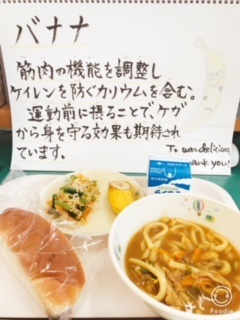 バナナ
筋肉の機能を調整し
ケイレンを防ぐカリウムを含む。
運動前に摂ることで、ケガ
から身を守る効果も期待され
ています。
delicious
Thank you!
Foodie